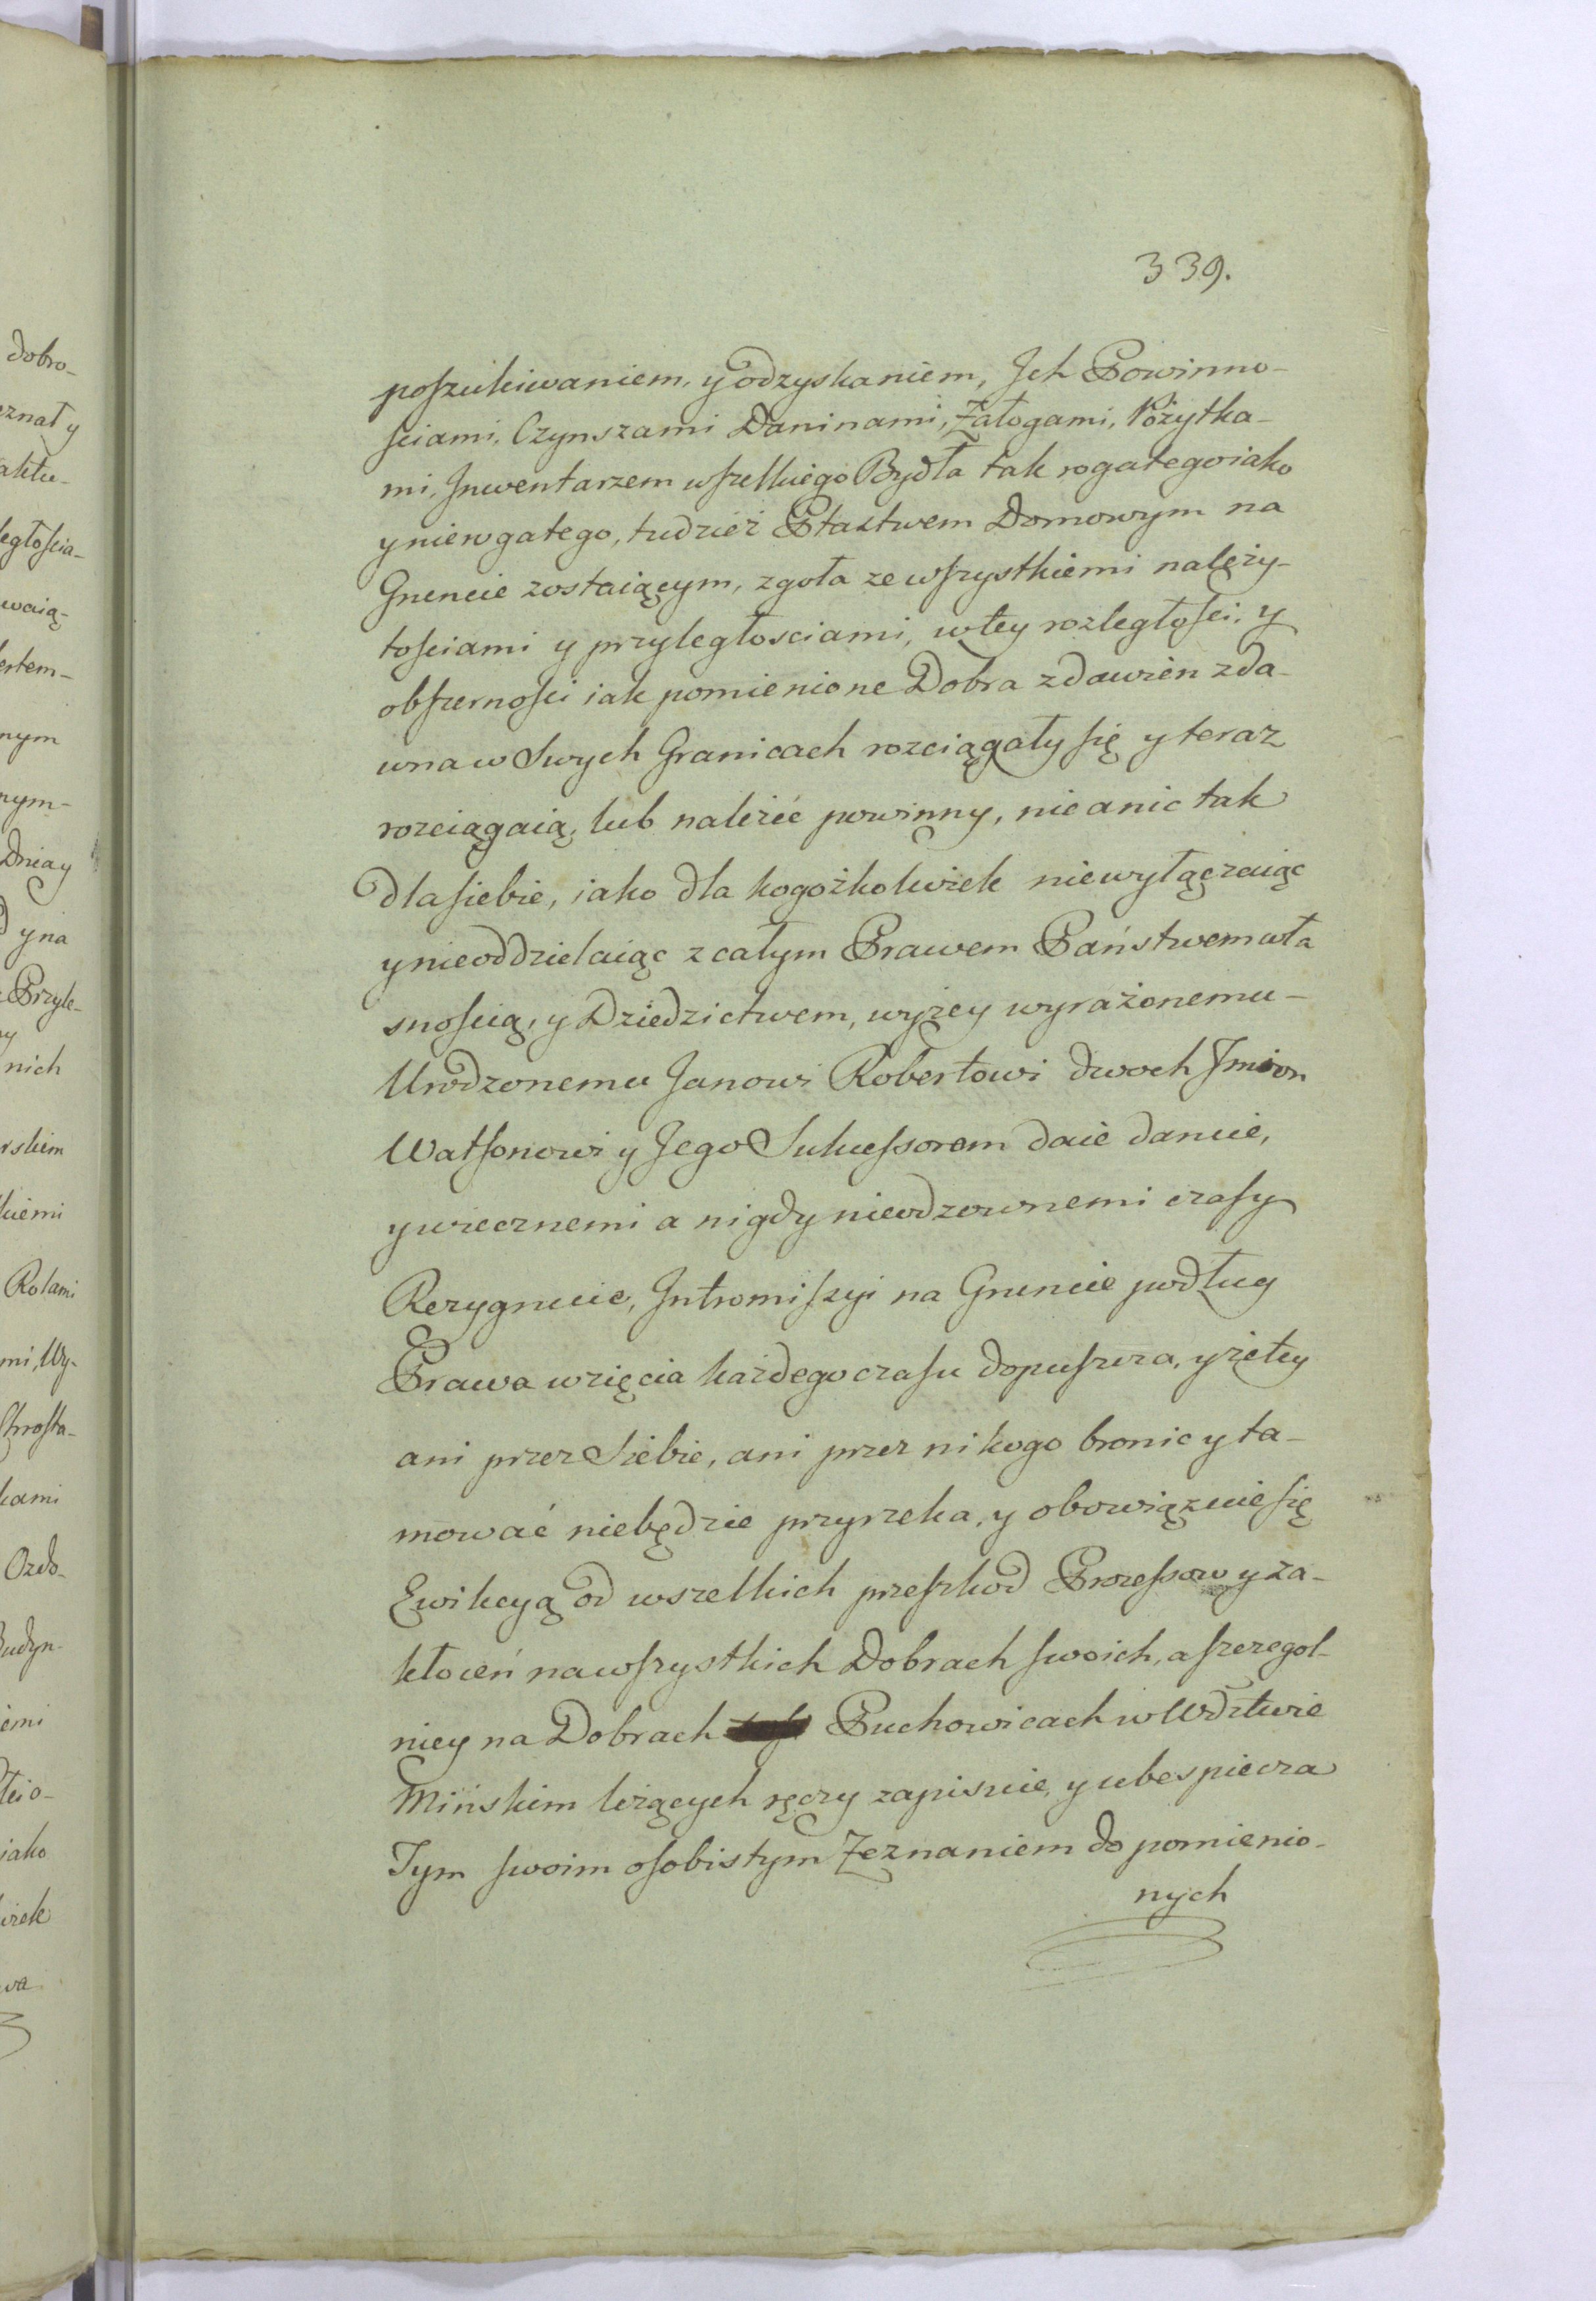 339.
poszukiwaniem, y odzyskaniem, Jch Powinno-
sciami, Czynszami Daninami, Załogami, Pożytka-
mi, Jnwentarzem wszelkiego Bydła tak rogatego iako
y nierogatego, tudzież Ptastwem Domowym na
Gruncie zostaiącym, zgoła ze wszystkiemi należy-
tościami y przyległosciami, w tey rozległości, y
obszerności iak pomienione Dobra zdawien zda-
wna w Swych Granicach rozciągały się y teraz
rozciągaią, lub należéć powinny, nic a nic tak
dla siebie, iako dla kogożkolwiek niewyłączaiąc
y nieoddzielaiąc z całym Prawem Państwem wła
snością, y Dziedzictwem, wyżey wyrażonemu-
Urodzonemu Janowi Robertowi dwoch Jmion
Watsonowi y Jego Sukcessorom daie daruie,
y wiecznemi a nigdy nieodzownemi czasy
Rezygnuie, Jntromiszyi na Gruncie podług
Prawa wzięcia każdego czasu dopuszcza, y żetey
ani przez Siebie, ani przez nikogo bronic y ta-
mować niebędzie przyrzeka, y obowiązuie się
Ewikcyą od wszelkich przeszkod Processow y za-
kłoceń na wszystkich Dobrach swoich, a szczegol-
niey na Dobrach Puchowicach w Wdztwie
Mińskim leżących ręczy zapisuie, y ubespiecza
Tym swoim osobistym Zeznaniem do pomienio-
nych
dobro-
eznał y
aktu-
egłoscia-
waią-
ertem-
nym
nym-
Dnia y
y na
Przyle-
nich
rskim
kiemi
Rolami
mi, Wy-
Chrosta-
kami
Ozdo-
Budyn-
iemi
iako
wiek
wa